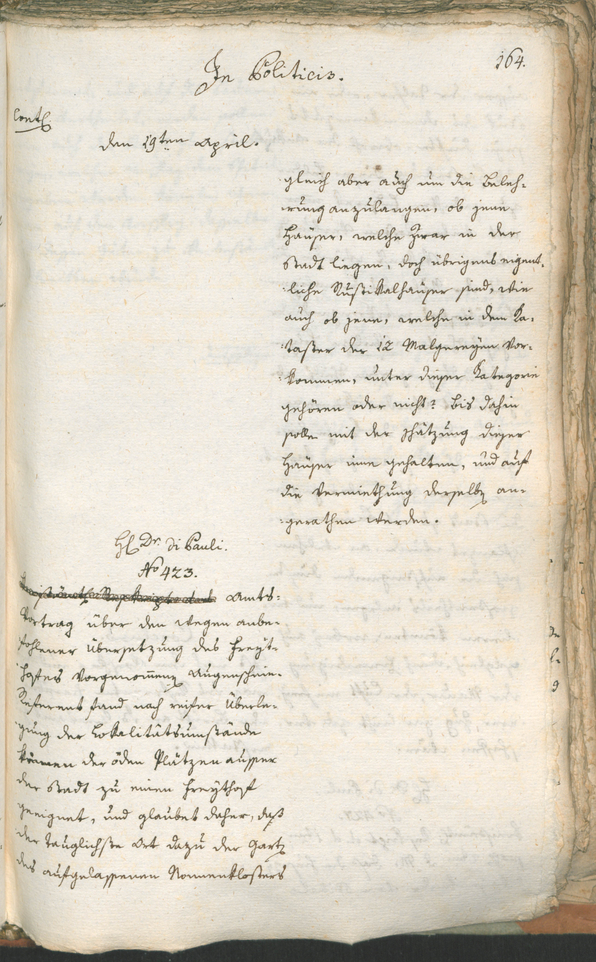 In Politicis.
164.
Conts.
den 19ten April.
gleich aber auch um die Beleh-
rung anzulangen, ob jene
Häuser, welche zwar in der
Stadt liegen, doch übrigens eigent-
liche Rustikalhäuser sind, wie
auch ob jene, welche in dem Ka-
taster der 12 Malgreyen vor-
kommen, unter dieser Kategorie
gehören oder nicht? bis dahin
solle mit der Schätzung dieser
Häuser inne gehalten, und auf
die Vermiethung derselben an-
gerathen werden.
H. Dr. di Pauli.
No 423.
Amts-
Vortrag über den wegen anbe-
fohlener Übersetzung des Freyt-
hofes vorgenommenen Augenschein.
Referent fand nach reifer Überle-
gung der Lokalitätsumstände
keinen der öden Plätzen ausser
der Stadt zu einen Freythof
geeignet, und glaubet daher, daß
der tauglichste Ort dazu der Garten
des aufgelassenen Nonnenklosters